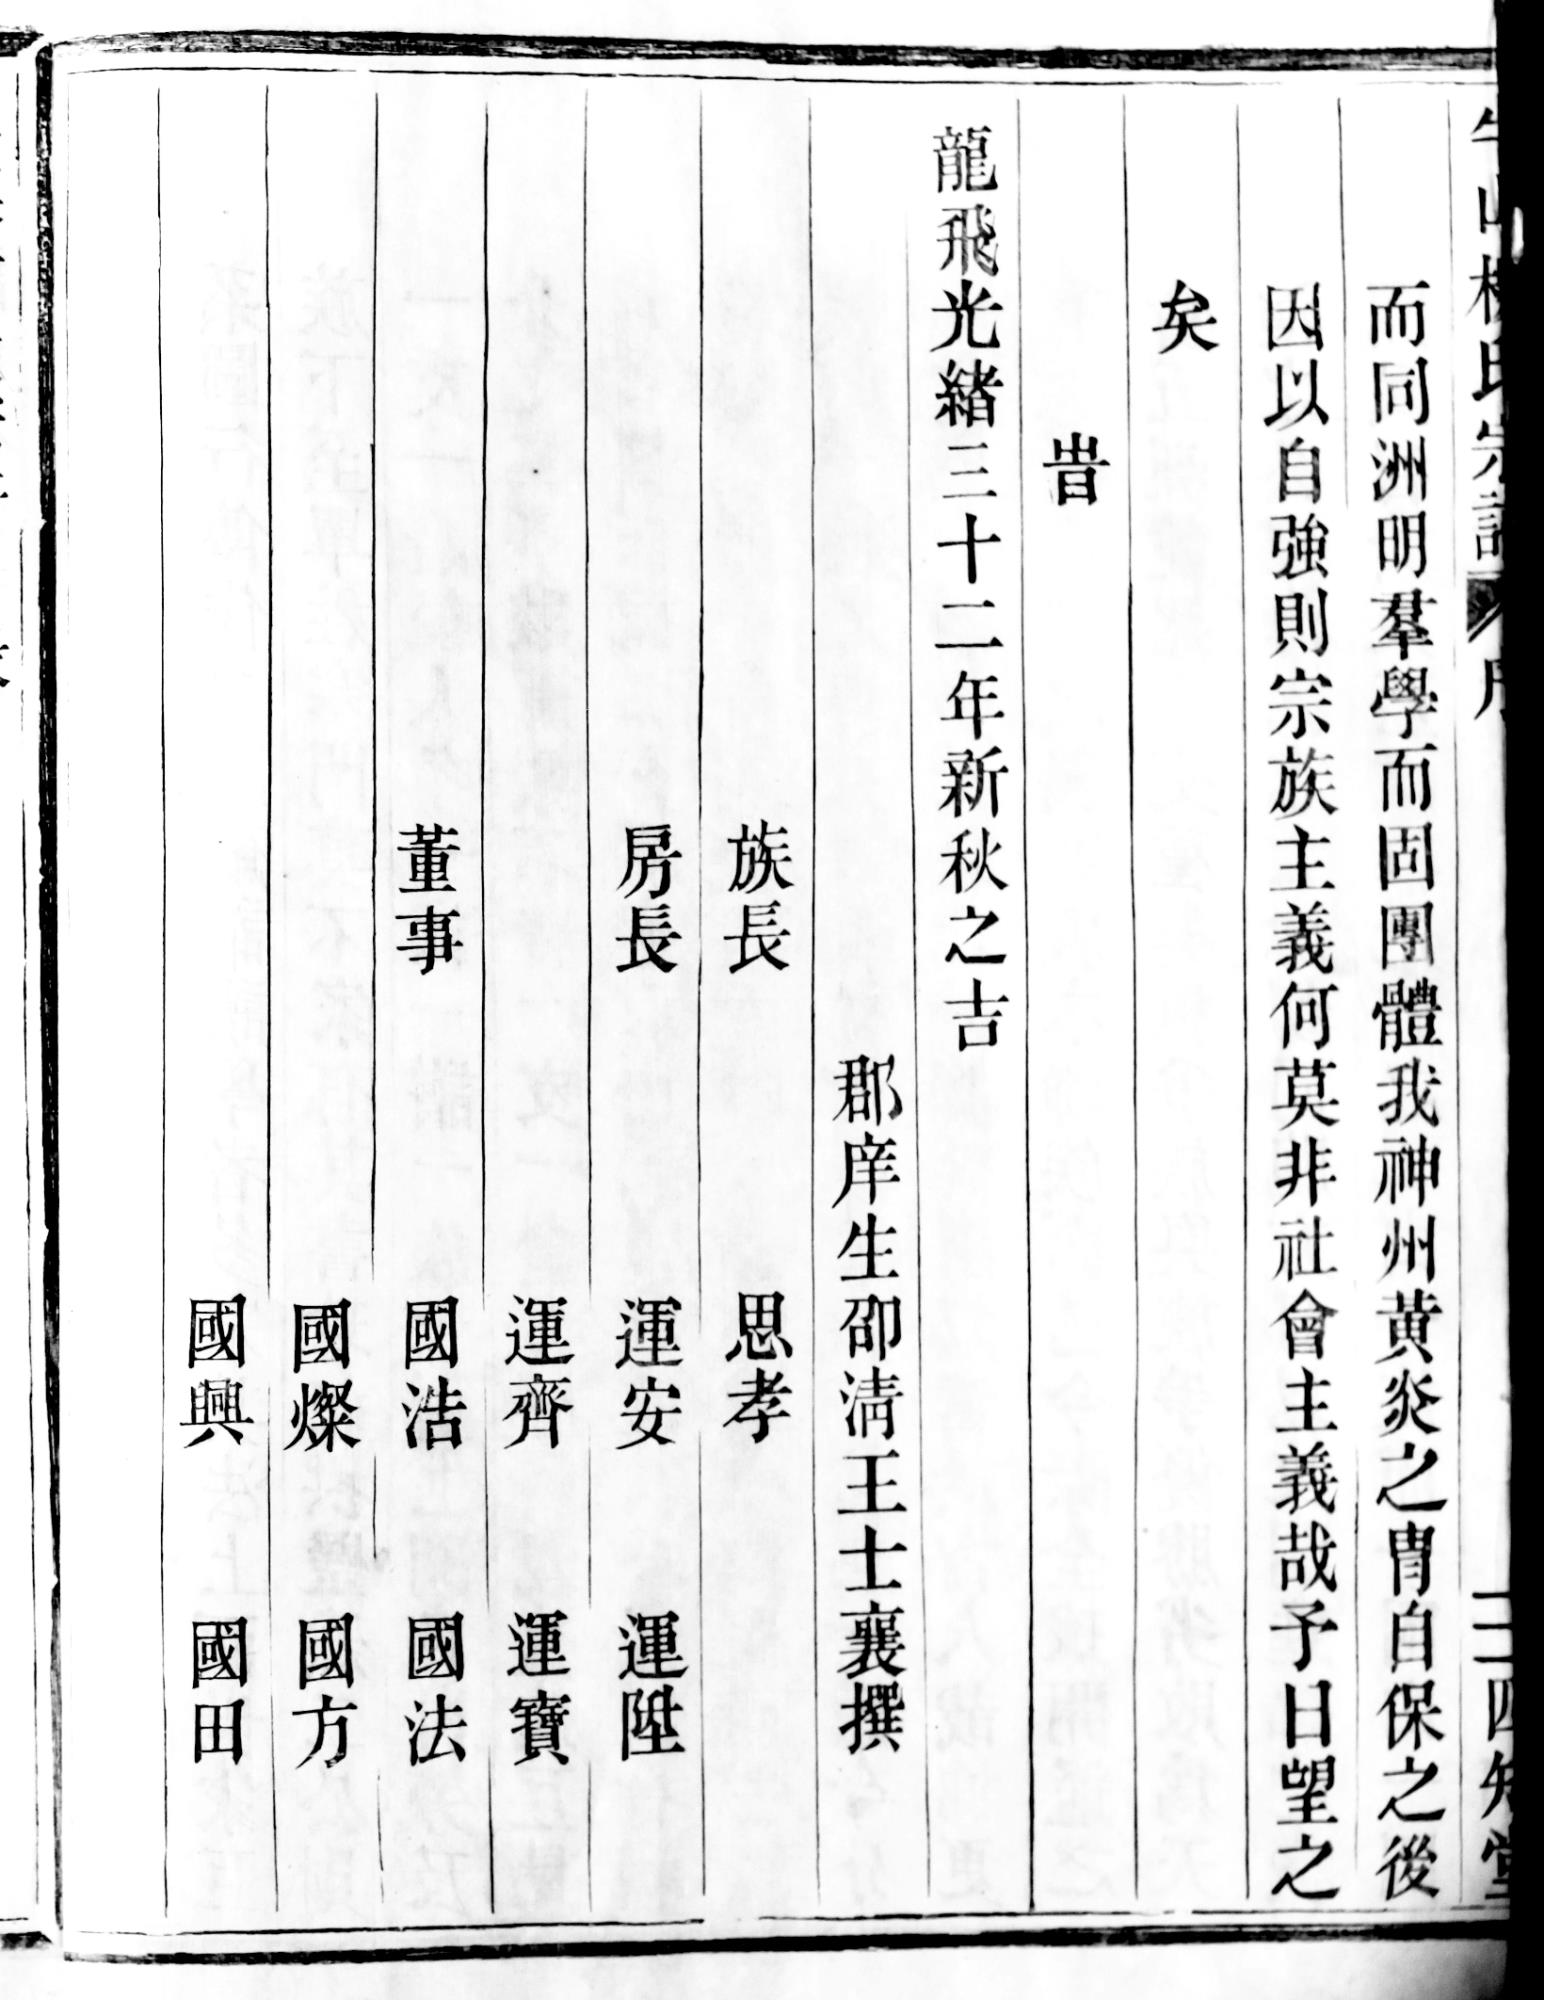 氏宗譜 序 二 四知堂
而同洲明羣學而固團體我神州黃炎之胄自保之後
因以自強則宗族主義何莫非社會主義哉予日望之
矣
旹
龍飛光緒三十二年新秋之吉
郡庠生卲淸王士襄撰
族長 思孝
房長 運安 運陞
運齊 運寶
董事 國浩 國法
國燦 國方
國興 國田